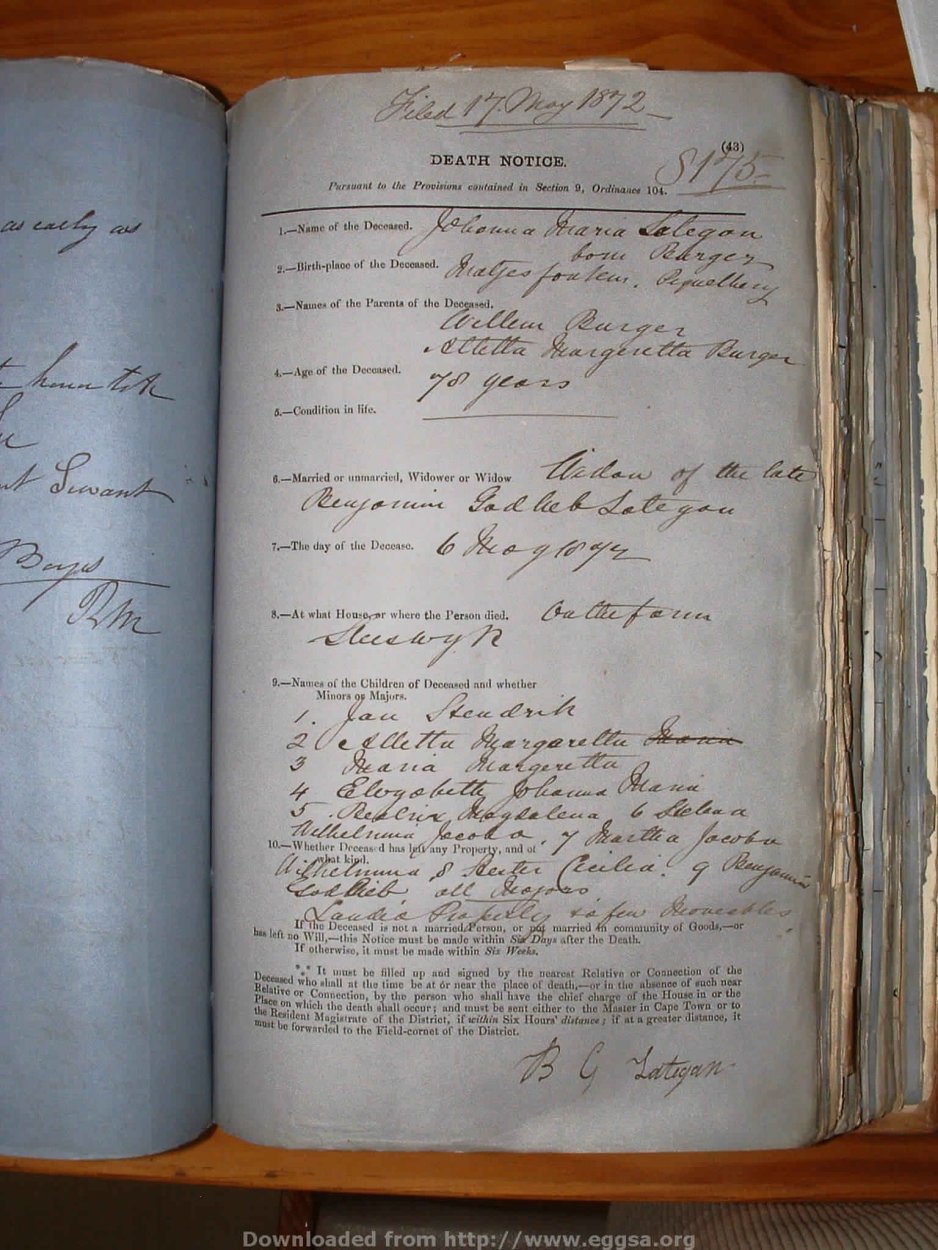 Filed 17. May 1872
(43)
8175
DEATH NOTICE.
Pursuant to the Provisions contained in Section 9, Ordinance 104.
1.—Name of the Deceased. Johanna Maria Lategan
born Burger
2.—Birth-place of the Deceased. Matjesfontein, Piquetberg
3.—Names of the Parents of the Deceased.
Willem Burger
Alletta Margeretta Burger
4.—Age of the Deceased. 78 years
5.—Condition in life.
6.—Married or unmarried, Widower or Widow Widow of the late
Benjamin Godlieb Lategan
7.—The day of the Decease. 6 May 1872
8.—At what House, or where the Person died. On the farm
9.—Names of the Children of Deceased and whether
Minors or Majors.
1. Jan Hendrik
2 Alletta Margaretta Maria
3 Maria Margeretta
4 Elizabeth Johanna Maria
5. Beatrix Magdalena 6
Wilhelmina Jacoba, 7 Martha Jacoba
10.—Whether Deceased has left any Property, and of
what kind.
Wilhelmina 8 Hester Cecilia. 9 Benjamin
Godlieb all Majors
Landed Property & a few Moveables
If the Deceased is not a married Person, or not married in community of Goods,—or
has left no Will,—this Notice must be made within Six Days after the Death.
If otherwise, it must be made within Six Weeks.
*** It must be filled up and signed by the nearest Relative or Connection of the
Deceased who shall at the time be at or near the place of death,—or in the absence of such near
Relative or Connection, by the person who shall have the chief charge of the House in or the
Place on which the death shall occur; and must be sent either to the Master in Cape Town or to
the Resident Magistrate of the District, if within Six Hours' distance; if at a greater distance, it
must be forwarded to the Field-cornet of the District.
B G Lategan
as early as
Servant
Boys
RM
Downloaded from http://www.eggsa.org